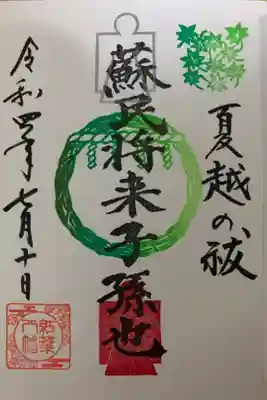 夏越の祓
蘇民将来子孫也
令和四年七月十日